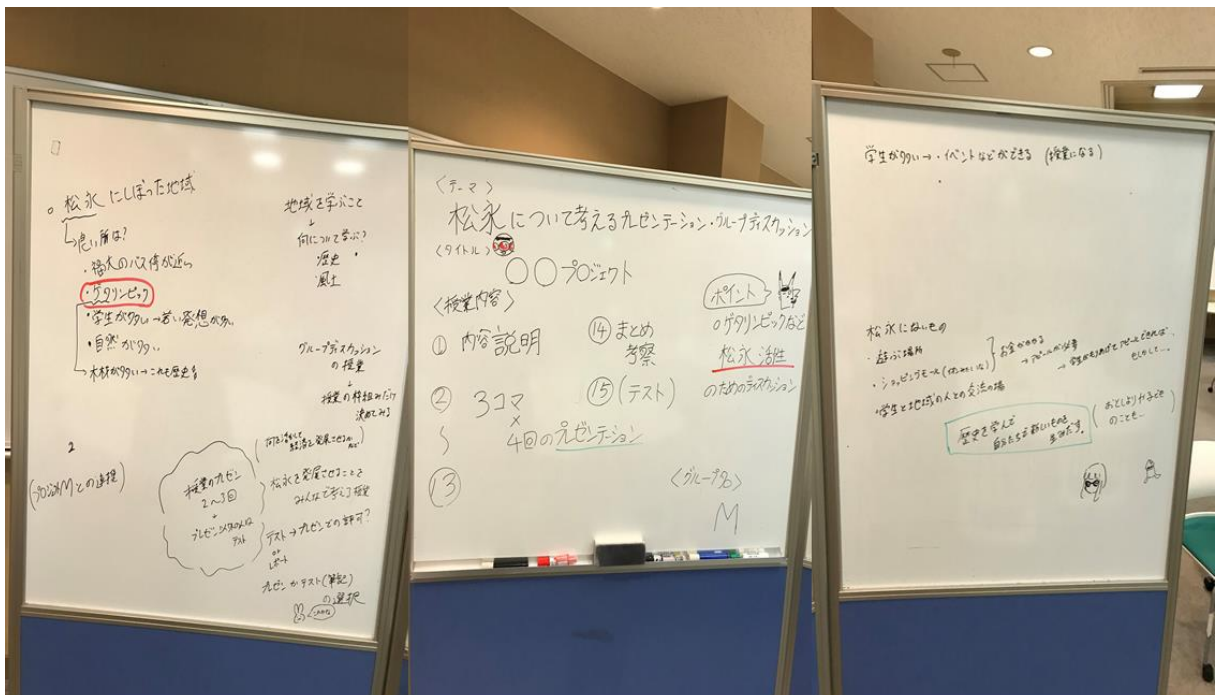 。松永にしぼった地域
良い所は?
・福大のバス停が近い
・ゲタリンピック
・学生が多い→若い発想が多い
・自然が多い
・木材が多い→これも歴史を
地域を学ぶこと
↓
何について学ぶ?
歴史
風土
グループディスカッション
の授業
↓
授業の枠組みだけ
決めてみる
2
との連携)
授業のプレゼン
2〜3回
+
プレゼン 人は
テスト
松永を発展させることを
みんなで考える授業
テスト→プレゼンでの評可?
or
レポート
プレゼンかテスト(筆記)
の選択
〈テーマ〉
松永について考えるプレゼンテーション・グループディスカッション
〈タイトル〉
○○プロジェクト
〈授業内容〉
① 内容説明
② 3コマ
×
4回のプレゼンテーション
〜
⑬
⑭ まとめ
考察
⑮(テスト)
ポイント
○ゲタリンピックなど
松永活性
のためのディスカッション
〈グループ名〉
M
学生が多い→・イベントなどができる (授業になる)
松永にないもの
・遊ぶ場所
・ショッピングモール( みたいな)
お金がかかる
→アピールが必要
・学生と地域の人との交流の場
歴史を学んで
自分たちで新しいものを
生みだす。
(おとしよりや子ども
のことも…